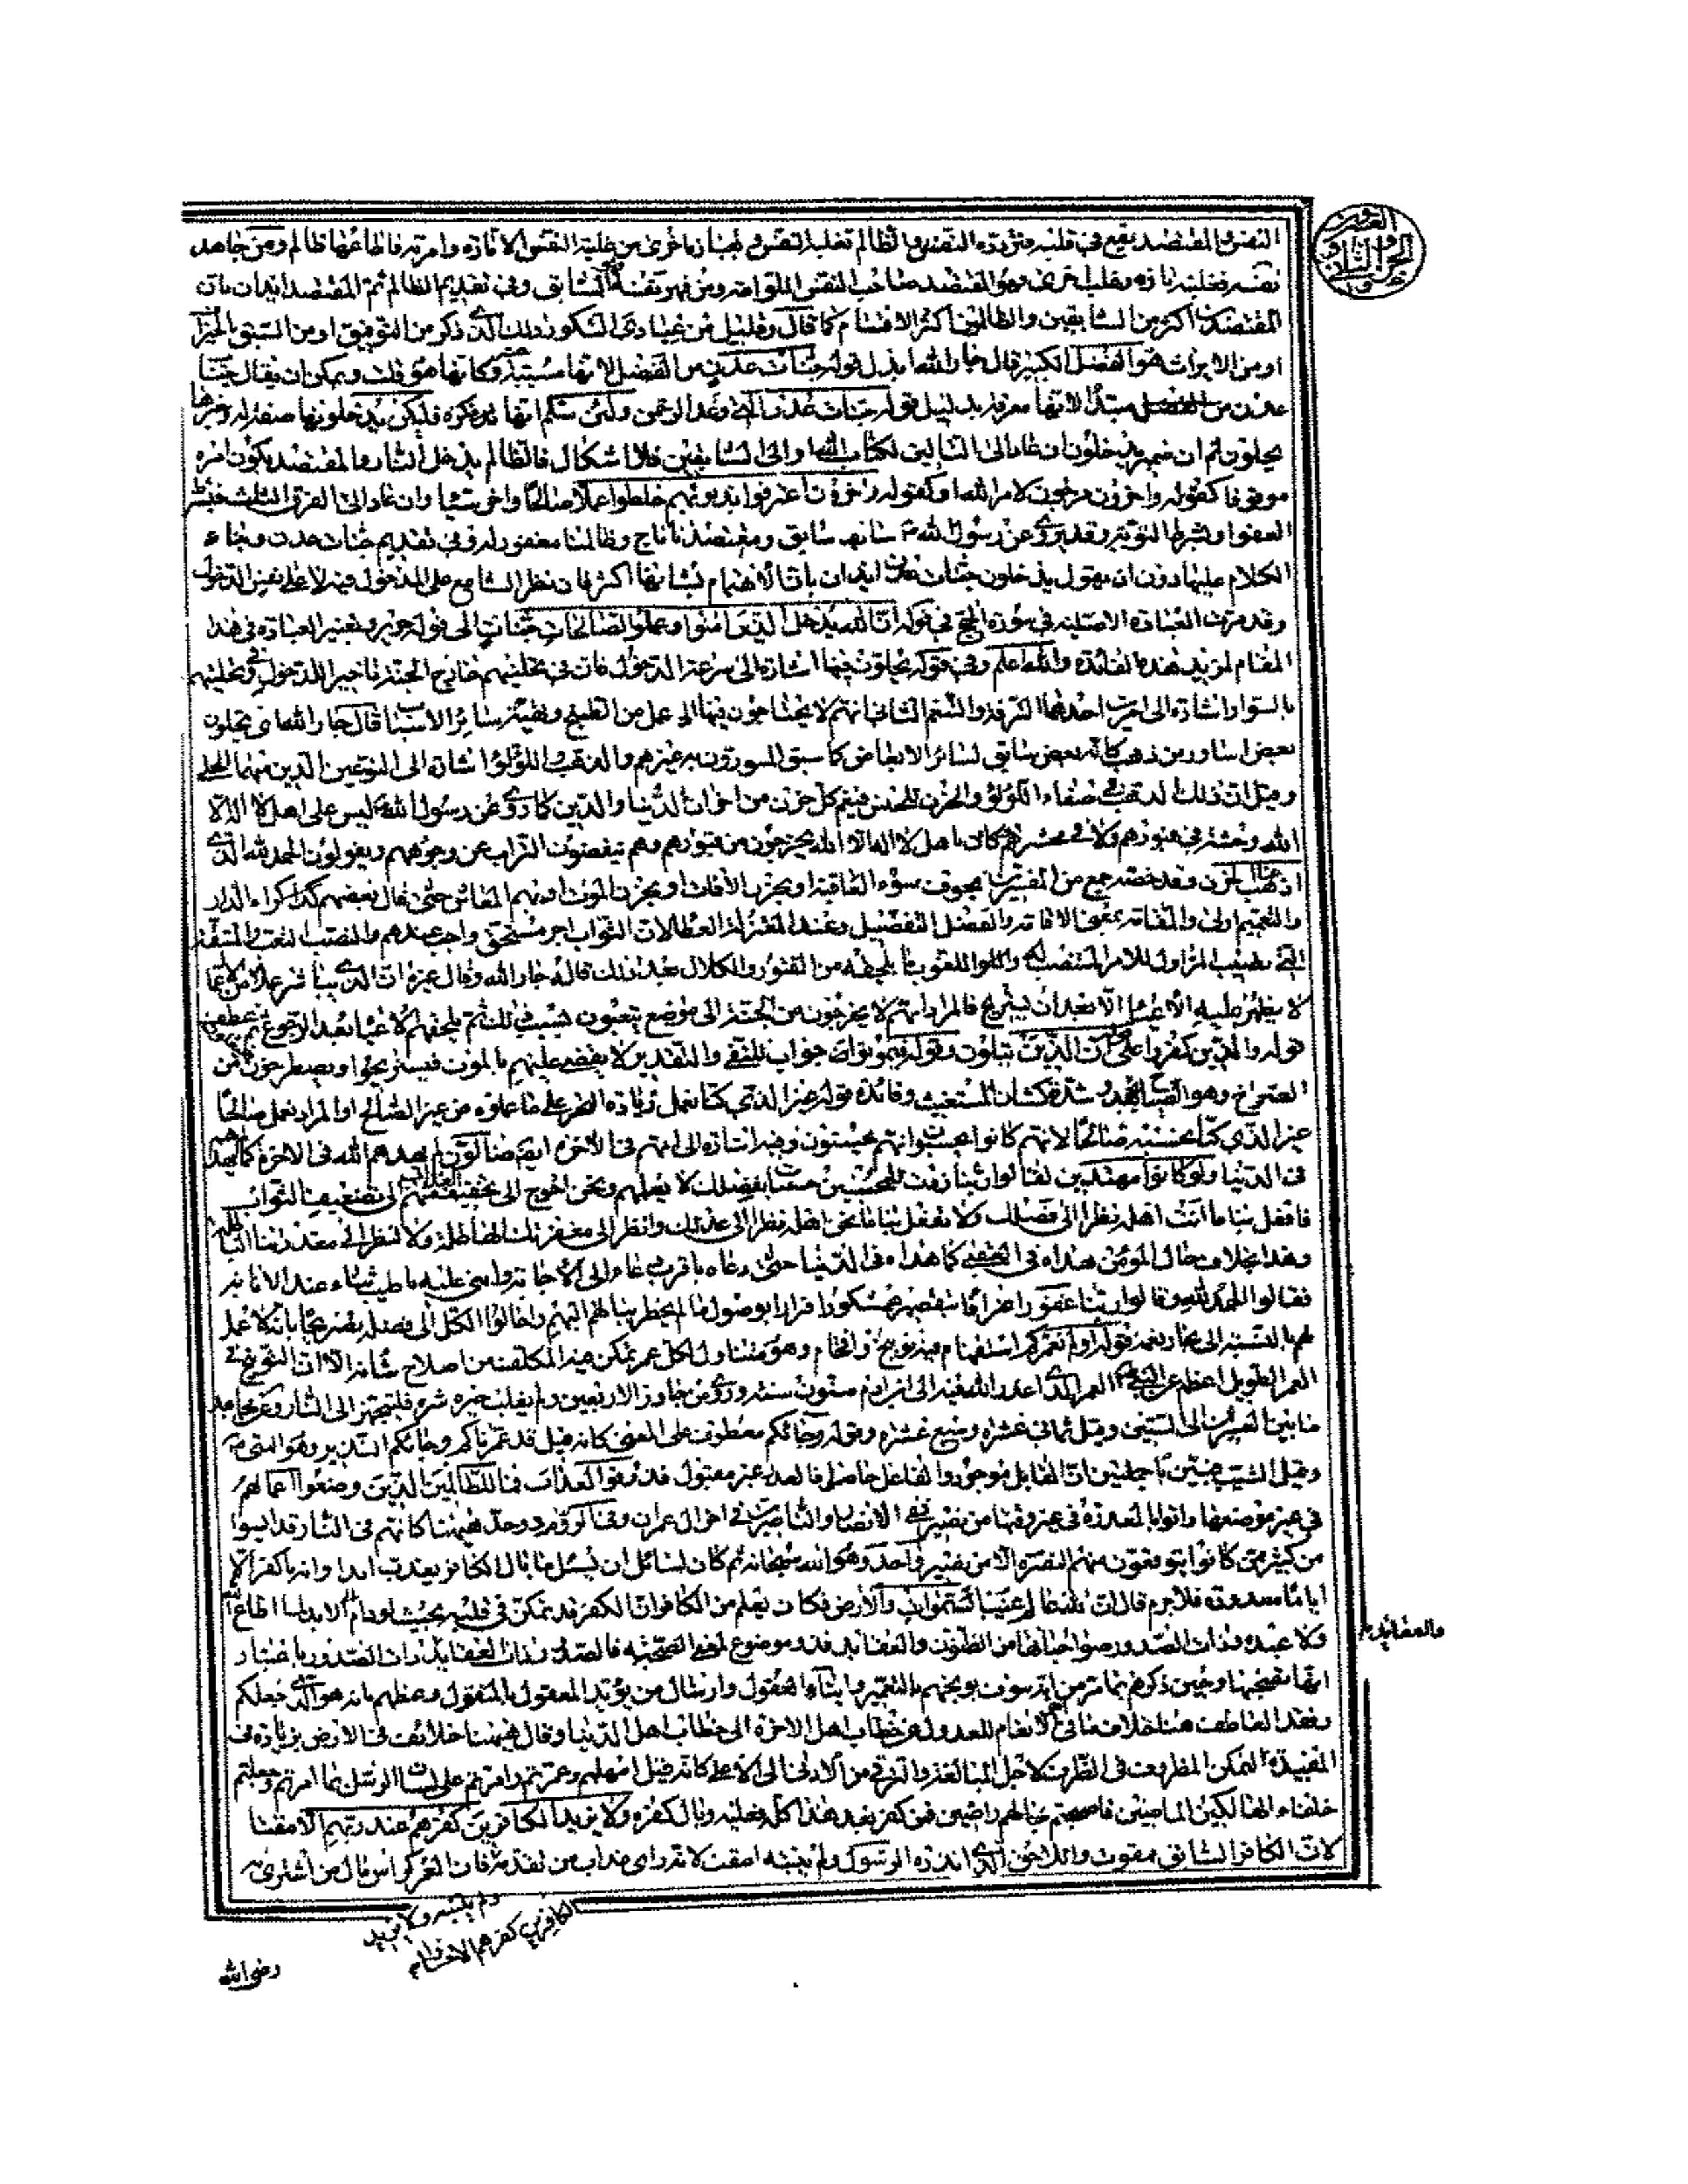 النفس والمقتصد يقع في قلبه فتردّه النفس والظالم تغلبه النفس و من غلبته النفس الامّارة وامرته فاطاعها ظالم ومن جاهد
نفسه فغلبته تارة وغلب اخرى فهو المقتصد صاحب النفس اللوّامة ومن قهر نفسه السابق وفي تقديم الظالم ثم المقتصد ايذان بان
المقتصدين اكثر من السابقين والظالمين اكثر الاقسام كما قال وقليل من عبادي الشكور ذلك الذي ذكر من التوفيق او من السبق بالخيرات
او من الايراث هو الفضل الكبير قال جار الله ابدل قوله جنات عدن من الفضل لانها مسببة وكانها هو قلت ويمكن ان يقال جنات
عدن مبتدأ لانها معرفة بدليل قوله جنات عدن التي وعد الرحمن ولئن سلم انها نكرة فليكن يدخلونها صفة له وخبرها
يحلون ثم ان ضمير يدخلون ان عاد الى التالين لكتاب الله او الى السابقين فلا اشكال فالظالم يدخل النار والمقتصد يكون امره
موقوفا كقوله وآخرون مرجون لامر الله او كقوله وآخرون اعترفوا بذنوبهم خلطوا عملا صالحا وآخر سيئا وان عاد الى الفرق الثلث
العفو او بشرط التوبة وقد يروى عن رسول الله سابقنا سابق ومقتصدنا ناج وظالمنا مغفور له وفي تقديم جنات عدن وبناء
الكلام عليها دون ان يقول يدخلون جنات عدن ايذان بان الاهتمام بشانها اكثر فان نظر السامع على المدخول فيه لا على نفس الدخول
وقد مرّت العبارة الاصلية في سورة الحج في قوله ان الله يدخل الذين آمنوا وعملوا الصالحات جنات الى قوله حرير وتغيير العبارة في هذا
المقام لمزيد هذه الفائدة والله اعلم وفي قوله يحلون فيها اشارة الى سرعة الدخول فان في تحليتهم خارج الجنة تاخير الدخول وفي تحليتهم
بالسوار اشارة الى امرين احدهما الترفه والتنعم الثاني انهم لا يحتاجون فيها الى عمل من الطبخ وتهيئة سائر الاسباب قال جار الله اي يحلون
بعض اساور من ذهب كانه بعض سابق لسائر الابعاض كما سبق المسورون به غيرهم والذهب واللؤلؤ اشارة الى النوعين الذين منهما الحلى
وقيل ان ذلك الذهب في صفاء اللؤلؤ والحزن للجنس فيعم كل حزن من احزان الدنيا والدين كما روى عن رسول الله ليس على اهل لا اله الا
الله وحشة في قبورهم ولا في محشرهم كان باهل لا اله الا الله يخرجون من قبورهم وهم ينفضون التراب عن وجوههم ويقولون الحمد لله الذي
اذهب عنا الحزن وقد خصه جمع من المفسرين بخوف سوء العاقبة او بحزن الآفات او بحزن الموت او بهم المعاش حتى قال بعضهم كراء الدار
والتعميم اولى والمقامة بمعنى الاقامة والفضل التفضيل وعند المعتزلة العطاء لان الثواب اجر مستحق واجب عندهم والنصب التعب والمشقة
التي تصيب المزاول للامر المنتصب له واللغوب ما يلحقه من الفتور والكلال بعد ذلك قاله جار الله وقال غيره ان الذي يباشر عملا
لا يظهر عليه الا بعد ان يستريح فالمراد انهم لا يخرجون من الجنة الى موضع يتعبون بسبب ذلك ثم يلحقهم الاعياء بعد الرجوع ثم عطف
قوله والذين كفروا على ان الذين يتلون وقوله فيموتوا جواب للنفي والتقدير لا يقضى عليهم بالموت فيستريحوا ويصطرخون من
الصراخ وهو الصياح بجهد وشدة كشان المستغيث وفائدة قوله غير الذي كنا نعمل زيادة التحسر على ما عملوه من غير الصالح او المراد نعمل صالحا
غير الذي كنا نحسبه صالحا لانهم كانوا يحسبون انهم يحسنون وفيه اشارة الى انهم في الآخرة ايضا ضالون لم يهدهم الله في الآخرة كما لم يهدهم
في الدنيا ولو كانوا مهتدين لقالوا ربنا زدت للمحسنين حسنات بفضلك لا بعملهم ونحن احوج الى تخفيف العذاب منهم الى تضعيف الثواب
فافعل بنا ما انت اهله نظرا الى فضلك ولا تفعل بنا ما نحن اهله نظرا الى عدلك وانظر الى مغفرتك الهاطلة ولا تنظر الى معذرتنا الباطلة
وهذا بخلاف حال المؤمن هداه في العقبى كما هداه في الدنيا حتى دعاه باقرب دعاء الى الاجابة واثنى عليه باطيب ثناء عند الانابة
فقالوا الحمد لله وقالوا ربنا غفور اعترافا بتقصيرهم شكور اقرارا بوصول ما لم يخطر ببالهم اليهم واحالوا الكل الى فضله تصريحا بان لا عمل
لهم بالنسبة الى بحار نعمه قوله اولم نعمركم استفهام فيه توبيخ وافحام وهو متناول لكل عمر يمكن فيه المكلف من اصلاح شانه الا ان التوبيخ في
العمر الطويل اعظم عن النبي العمر الذي اعذر الله فيه الى ابن آدم ستون سنة وروى من جاوز الاربعين ولم يغلب خيره شره فليتجهز الى النار وعن مجاهد
ما بين العشرين الى الستين وقيل ثماني عشرة وسبع عشرة وقوله وجاءكم معطوف على المعنى كانه قيل قد عمرناكم وجاءكم النذير وهو النبي
وقيل الشيب ان القابل موجود والفاعل حاصل فالعذر غير مقبول فذوقوا العذاب فما للظالمين الذين وضعوا اعمالهم
في غير موضعها واتوا بالمعذرة في غير وقتها من نصير نفى الانصار والناصرين في آخر آل عمران وفي الروم ووحد ههنا كانهم في النار قد ايسوا
من كثير ممن كانوا يتوقعون منهم النصرة الا من نصير واحد وهو الله سبحانه ثم كان لسائل ان يسئل ما بال الكافر يعذب ابدا وانه ما كفر الا
اياما معدودة فلا جرم قال ان الله عالم غيب السموات والارض فكان يعلم من الكافر ان الكفر قد تمكن في قلبه بحيث لو دام الى الابد لما اطاع الله
ولا عبده وذات الصدور صواحباتها من الظنون والعقائد فذو موضوع لمعنى الصحبة فالصدر ذات العقائد ذات الصدور باعتبار
انها تصحبها وحين ذكرهم بما مر من انه سوف يوبخهم بالتعمير وايتاء العقول وارسال من يؤيد المعقول بالمنقول وعظهم بانه هو الذي جعلكم
وفقد العاطف هنا خلاف ما في الانعام للعدول عن خطاب اهل الآخرة الى خطاب اهل الدنيا وقال ههنا خلائف في الارض بزيادة في
المفيدة لتمكن المظروف في الظرف لاجل المبالغة والترقي من الادنى الى الاعلى كانه قيل امهلتم وعمرتم وامرتم على لسان الرسل بما امرتم وجعلتم
خلفاء الهالكين الماضين فاصبحتم بحالهم راضين فمن كفر بعد هذا كله فعليه وبال كفره ولا يزيد الكافرين كفرهم عند ربهم الا مقتا
لان الكافر السابق ممقوت واللاحق الذي انذره الرسول ولم يتنبه امقت لانه راى عذاب من تقدمه فان العمر كراس مال من اشترى به
والعقائد
ولم يتنبه ولا يزيد
الكافرين كفرهم الا خسارا
رضى الله